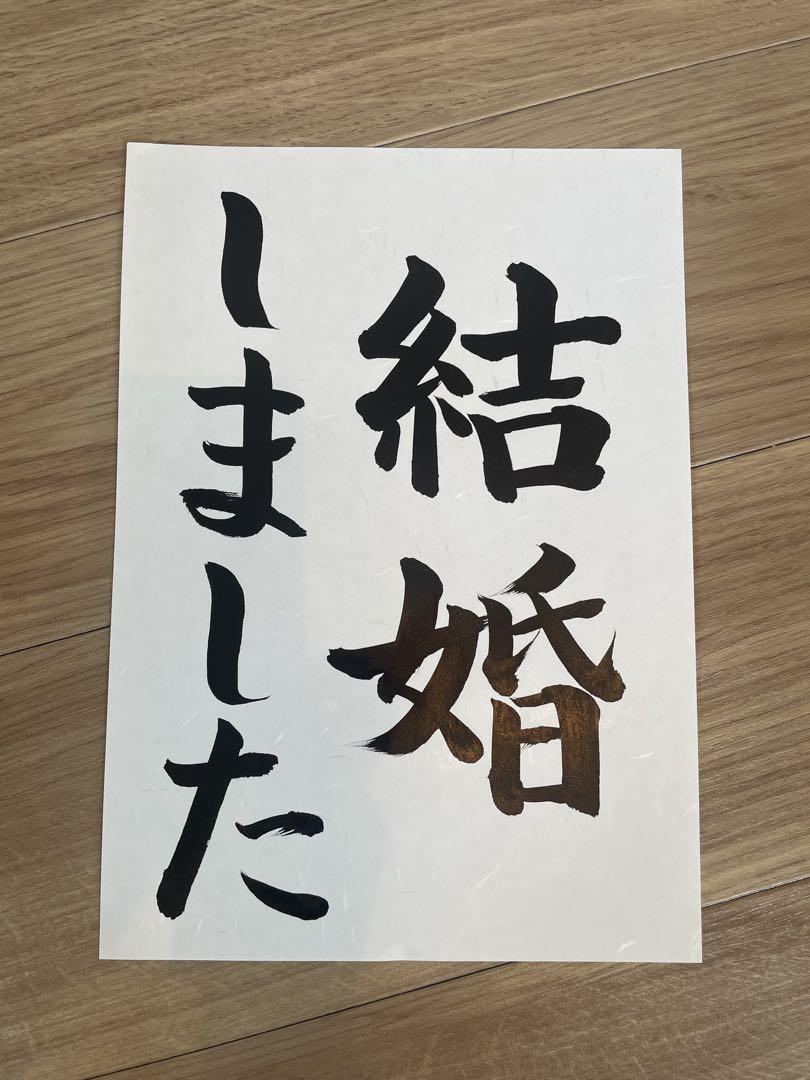 結婚
しました